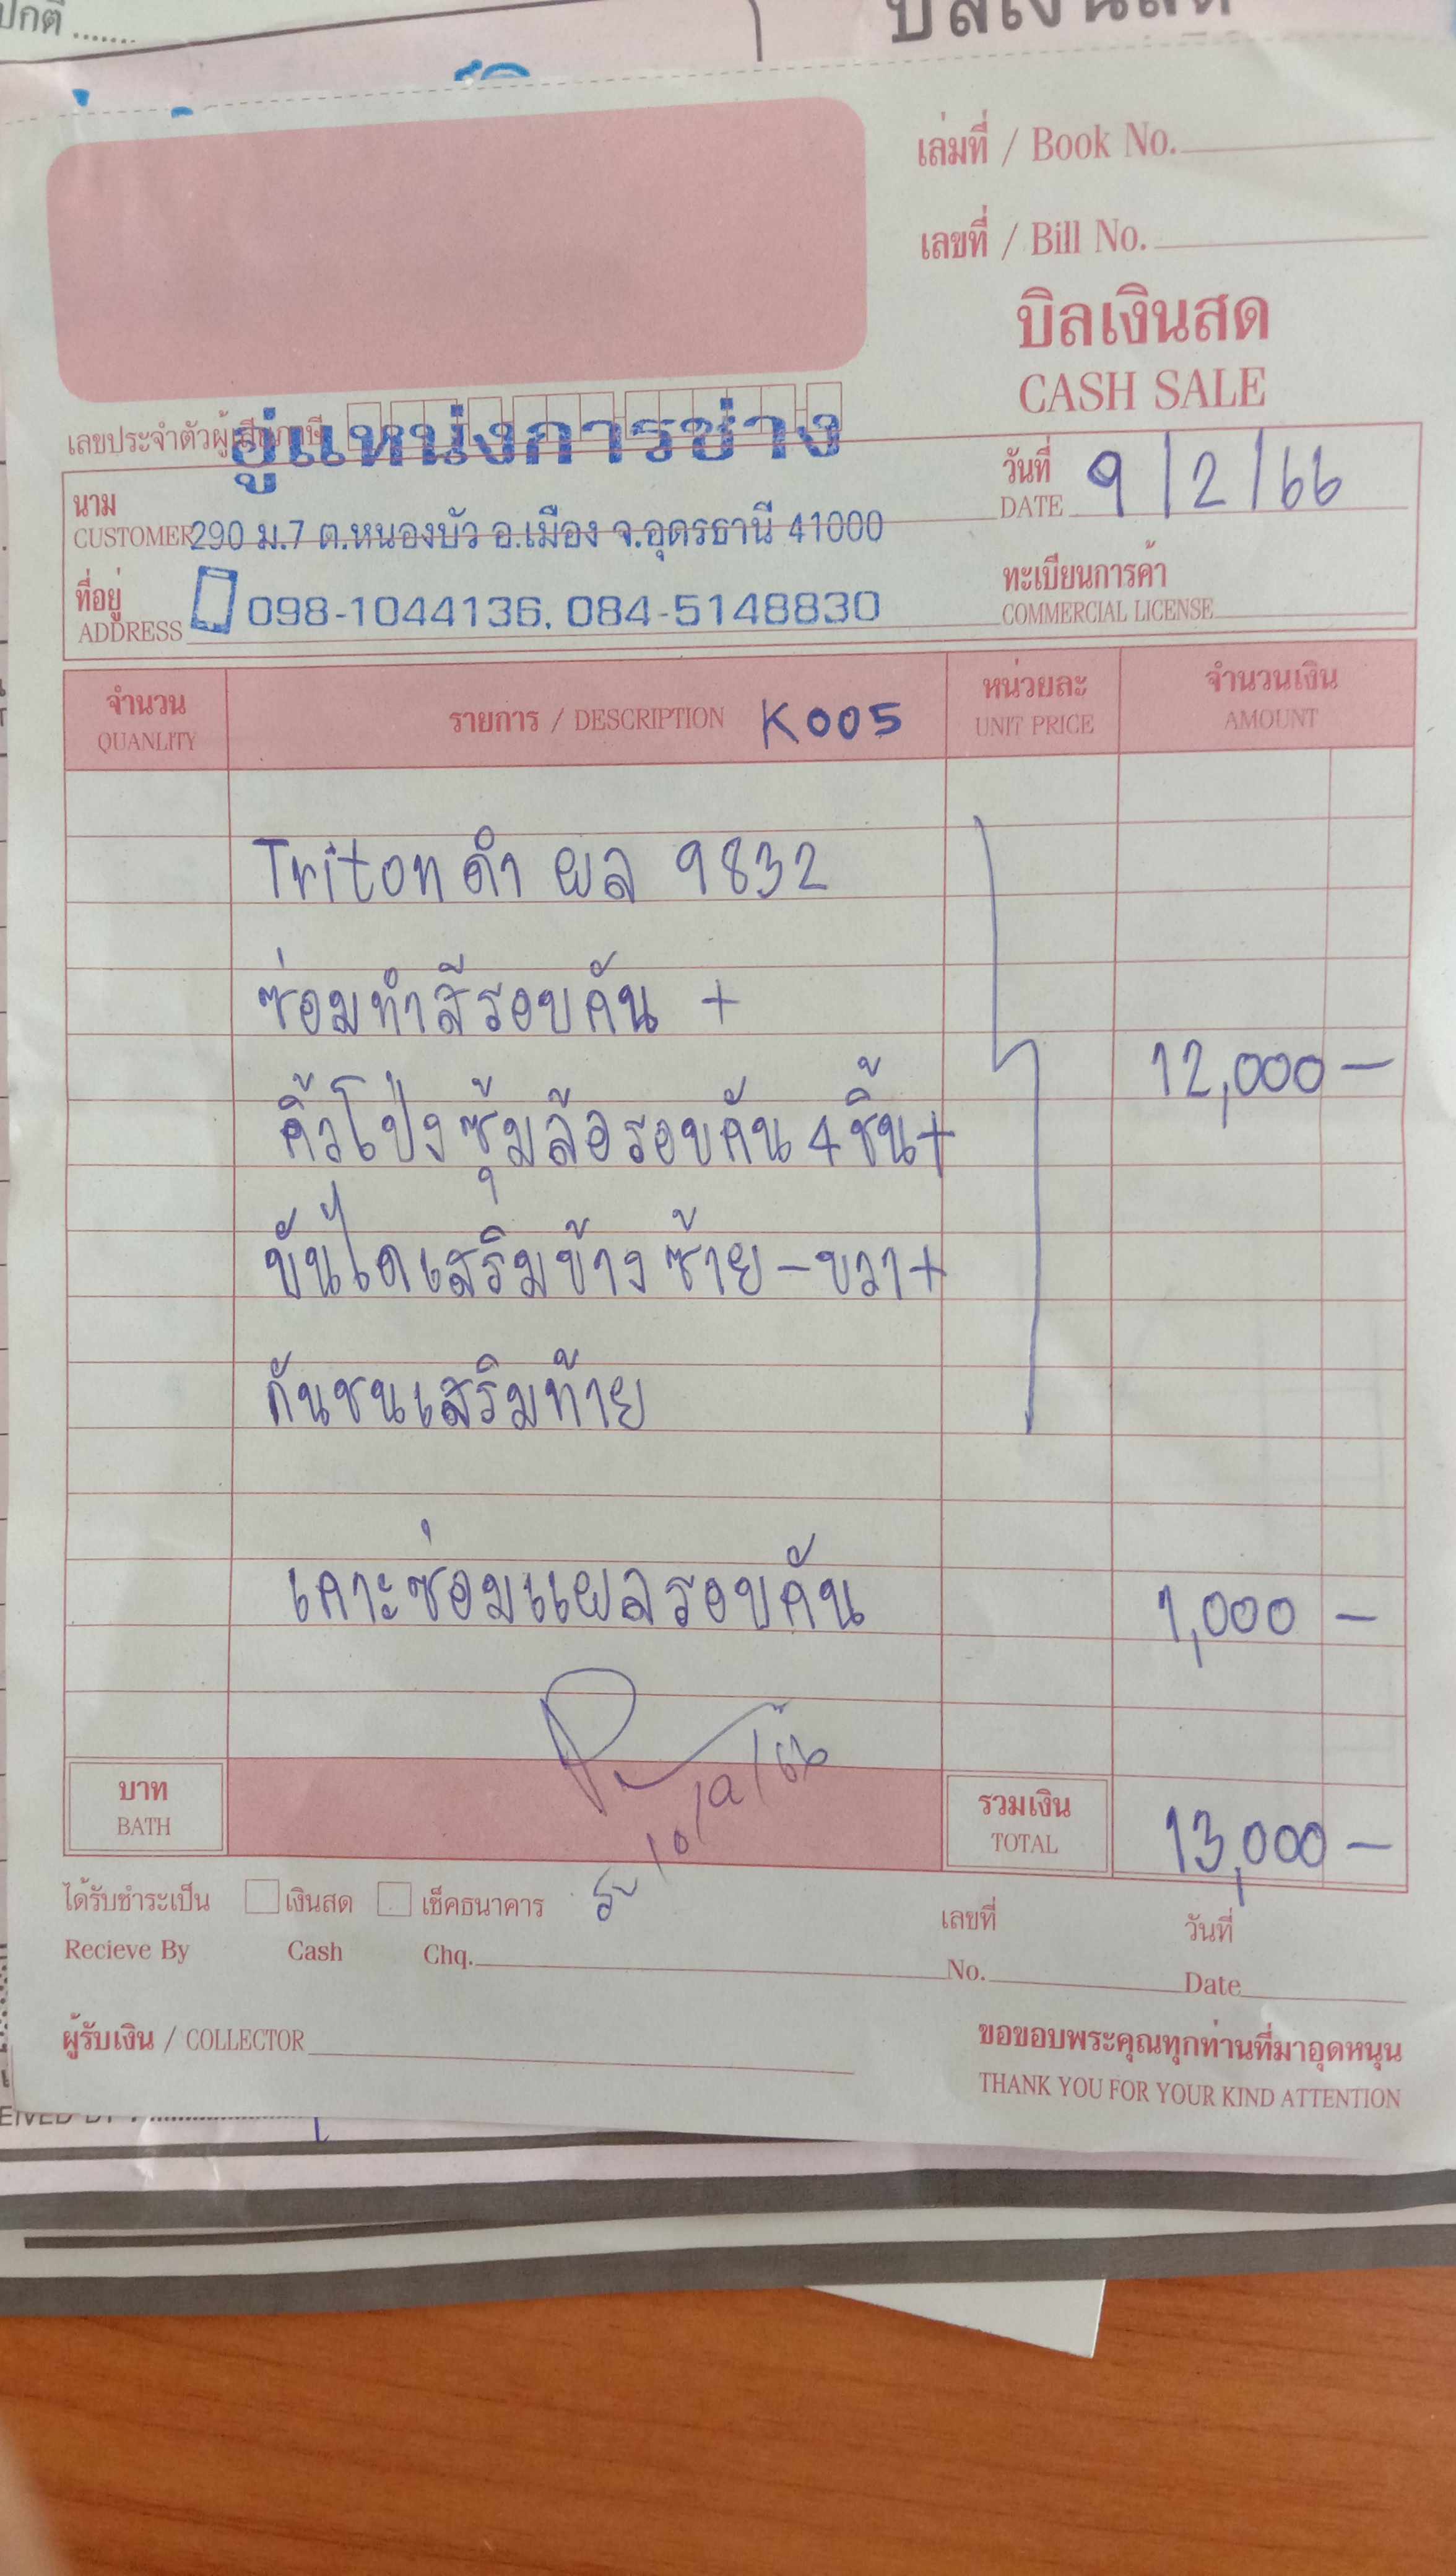 ปกติ .......
บิลเงินสด
เล่มที่ / Book No.
เลขที่ / Bill No.
บิลเงินสด
CASH SALE
เลขประจำตัวผู้เสียภาษี
อู่แหน่งการช่าง
นาม
CUSTOMER
290 ม.7 ต.หนองบัว อ.เมือง จ.อุดรธานี 41000
วันที่
DATE 9/2/66
ที่อยู่
ADDRESS
098-1044136, 084-5148830
ทะเบียนการค้า
COMMERCIAL LICENSE
จำนวน
QUANLITY
รายการ / DESCRIPTION K005
หน่วยละ
UNIT PRICE
จำนวนเงิน
AMOUNT
Triton ดำ ผล 9832
ซ่อมทำสีรอบคัน +
12,000 -
คิ้วโป่งซุ้มล้อรอบคัน 4 ชิ้น +
บันไดเสริมข้าง ซ้าย - ขวา +
กันชนเสริมท้าย
เคาะซ่อมแผลรอบคัน 1,000 -
บาท
BATH
รวมเงิน
TOTAL
13,000 -
ได้รับชำระเป็น เงินสด เช็คธนาคาร
เลขที่ วันที่
Recieve By Cash Chq.
No. Date
ผู้รับเงิน / COLLECTOR
ขอขอบพระคุณทุกท่านที่มาอุดหนุน
THANK YOU FOR YOUR KIND ATTENTION